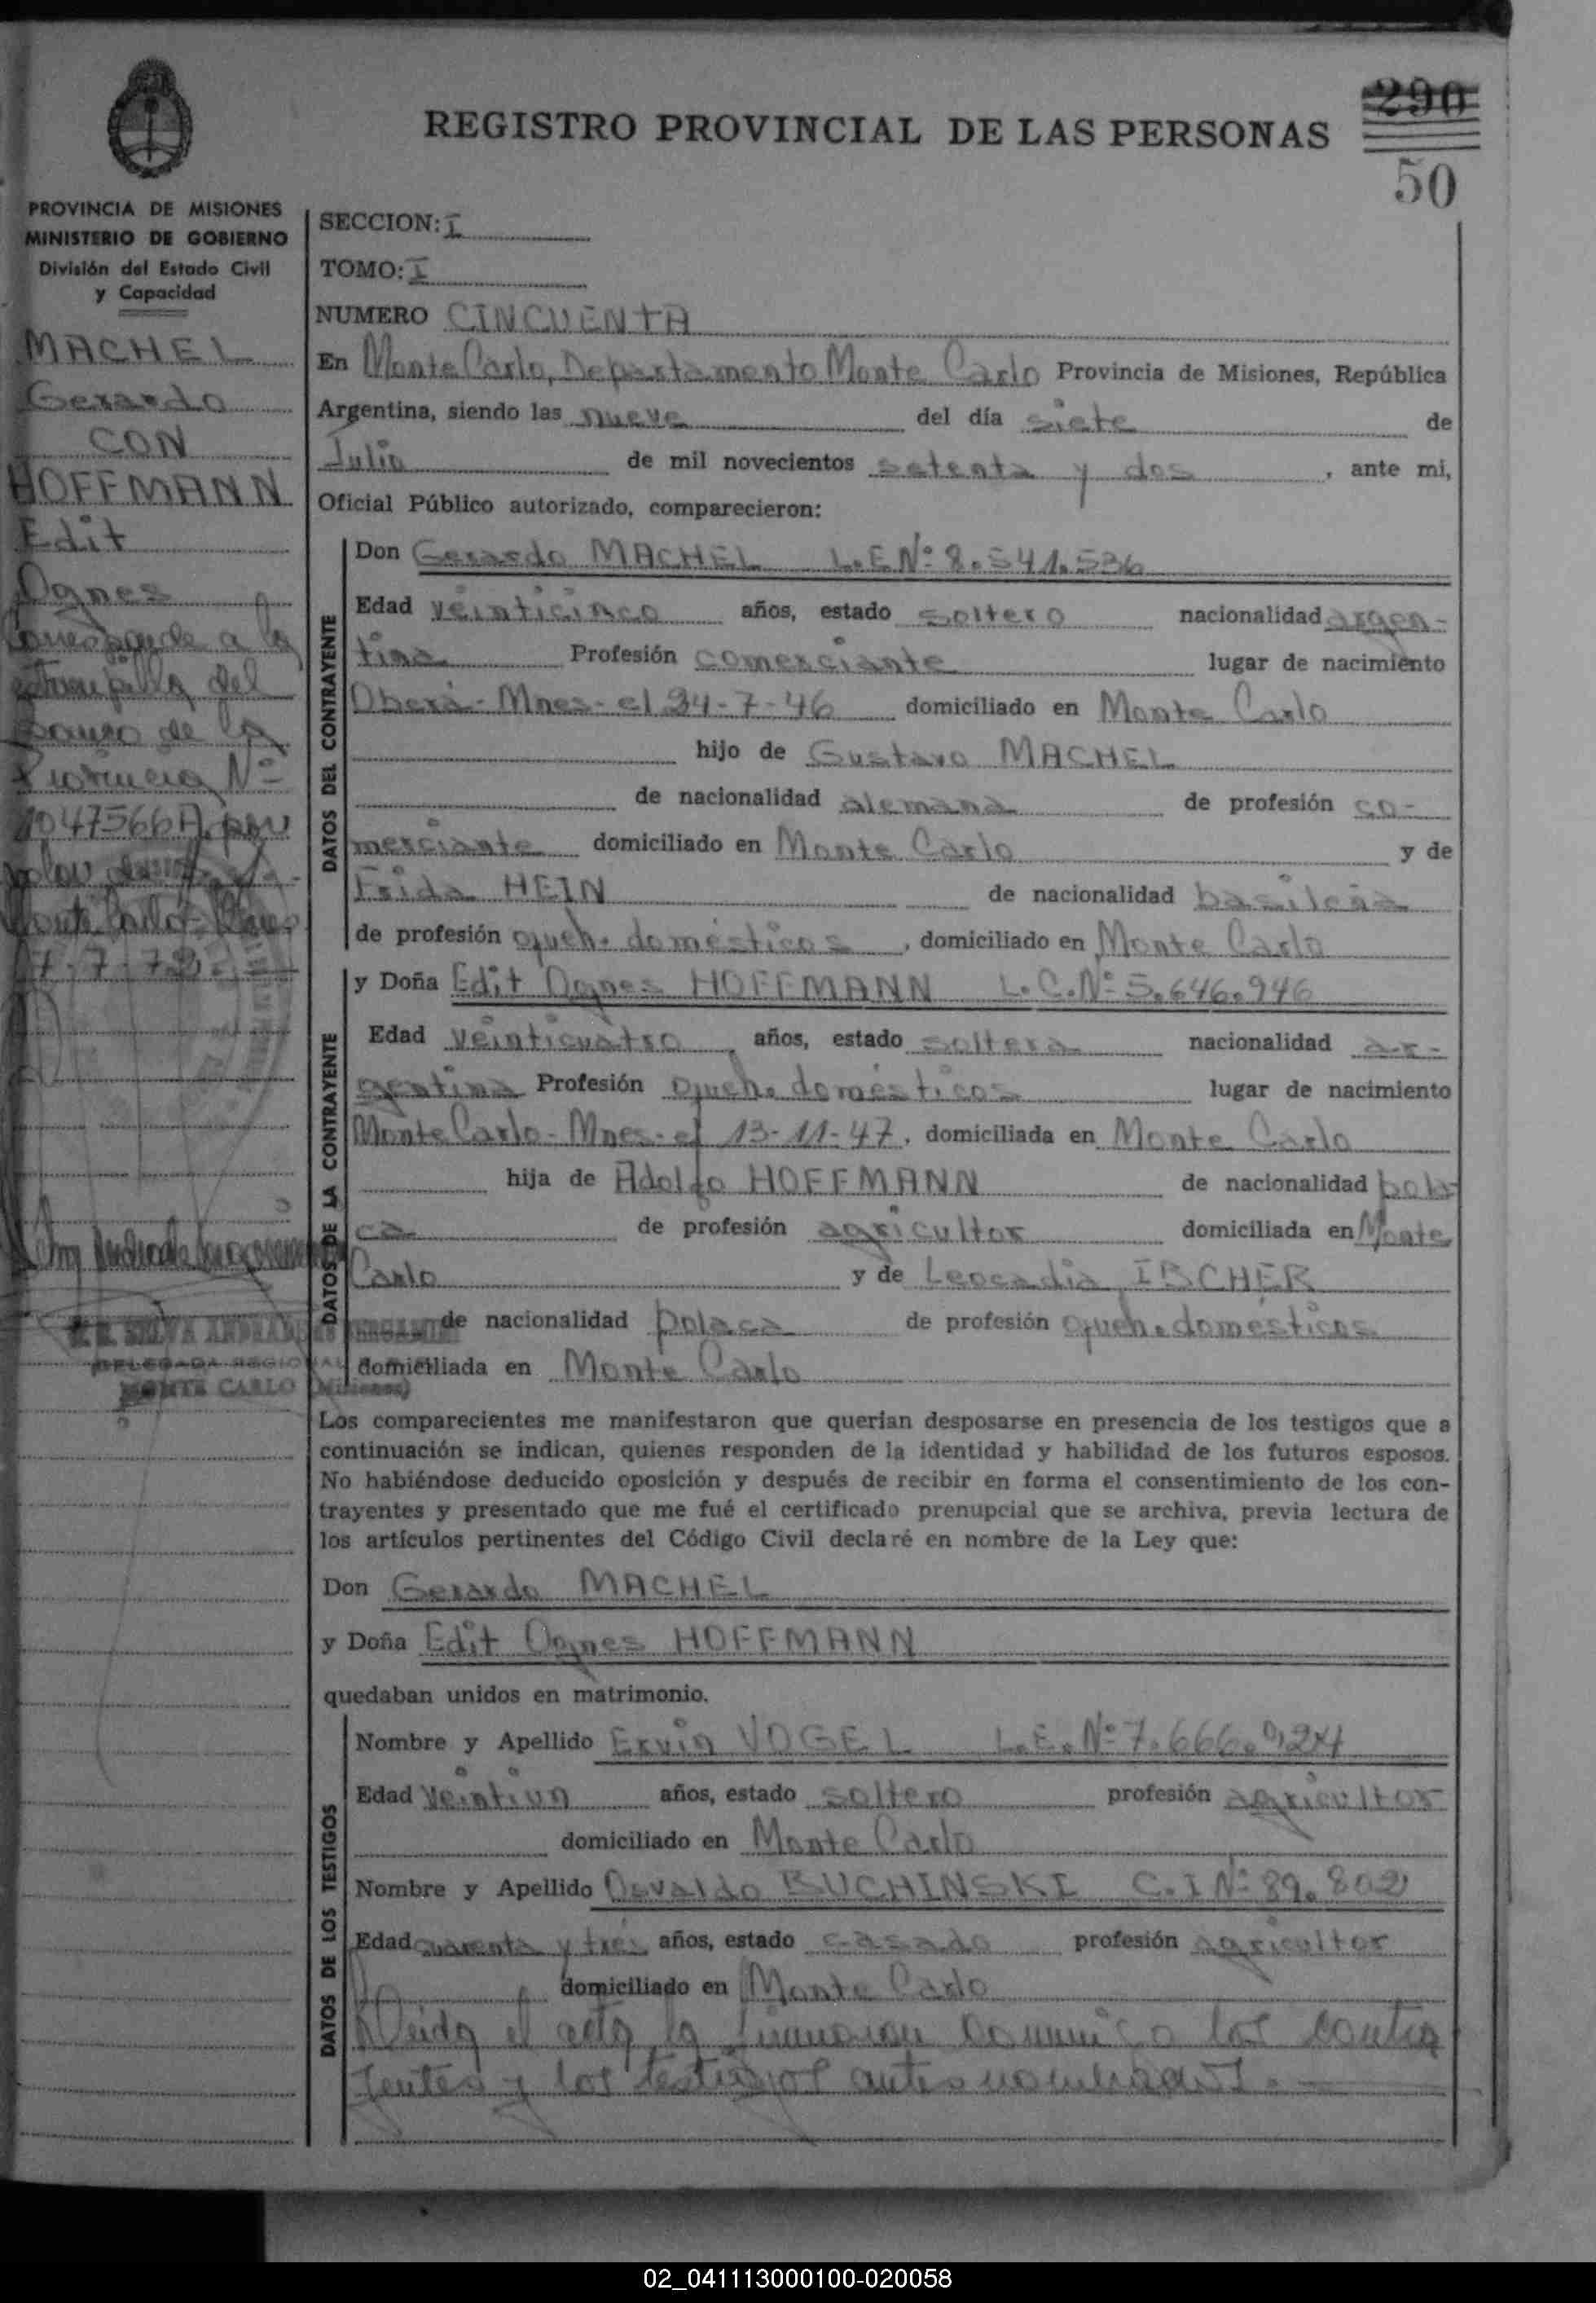 REGISTRO PROVINCIAL DE LAS PERSONAS
290
50
PROVINCIA DE MISIONES
MINISTERIO DE GOBIERNO
División del Estado Civil
y Capacidad
MACHEL
Gerardo
CON
HOFFMANN
Edit
Ognes
Corresponde a la
estampilla del
Banco de la
Provincia Nº
1047566A, por
valor
Monte Carlo
7-7-72
DELEGADA REGIONAL
MONTE CARLO (Misiones)
SECCION: I
TOMO: I
NUMERO CINCUENTA
En Monte Carlo, Departamento Monte Carlo Provincia de Misiones, República
Argentina, siendo las nueve del día siete de
Julio de mil novecientos setenta y dos, ante mi,
Oficial Público autorizado, comparecieron:
DATOS DEL CONTRAYENTE
Don Gerardo MACHEL L.E.Nº 8.541.536
Edad veinticinco años, estado soltero nacionalidad argen-
tina Profesión comerciante lugar de nacimiento
Oberá - Mnes - el 24-7-46 domiciliado en Monte Carlo
hijo de Gustavo MACHEL
de nacionalidad alemana de profesión co-
merciante domiciliado en Monte Carlo y de
Frida HEIN de nacionalidad basileña
de profesión queh. domésticos, domiciliado en Monte Carlo
DATOS DE LA CONTRAYENTE
y Doña Edit Ognes HOFFMANN L.C.Nº 5.646.946
Edad veinticuatro, años, estado soltera nacionalidad ar-
gentina Profesión queh. domésticos lugar de nacimiento
Monte Carlo - Mnes - el 13-11-47, domiciliada en Monte Carlo
hija de Adolfo HOFFMANN de nacionalidad pola
ca de profesión agricultor domiciliada en Monte
Carlo y de Leocadia IBCHER
de nacionalidad polaca de profesión queh. domésticos
domiciliada en Monte Carlo
Los comparecientes me manifestaron que querian desposarse en presencia de los testigos que a
continuación se indican, quienes responden de la identidad y habilidad de los futuros esposos.
No habiéndose deducido oposición y después de recibir en forma el consentimiento de los con-
trayentes y presentado que me fué el certificado prenupcial que se archiva, previa lectura de
los artículos pertinentes del Código Civil declaré en nombre de la Ley que:
Don Gerardo MACHEL
y Doña Edit Ognes HOFFMANN
quedaban unidos en matrimonio.
DATOS DE LOS TESTIGOS
Nombre y Apellido Ervin VOGEL L.E.Nº 7.666.024
Edad veintiun años, estado soltero profesión agricultor
domiciliado en Monte Carlo
Nombre y Apellido Osvaldo BUCHINSKI C.I Nº 89.802
Edad cuarenta y tres años, estado casado profesión agricultor
domiciliado en Monte Carlo
Leida el acta la firmaron conmigo los contra
yentes y los testigos antes nombrados.
02_041113000100-020058